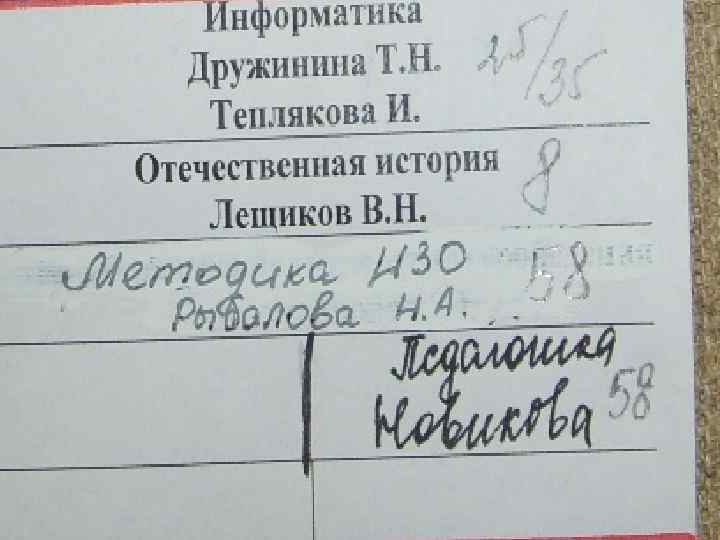 Информатика
Дружинина Т.Н. 25/35
Теплякова И.
Отечественная история 8
Лещиков В.Н.
Методика ИЗО 58
Рыбалова Н.А.
Педагогика
Новикова 58